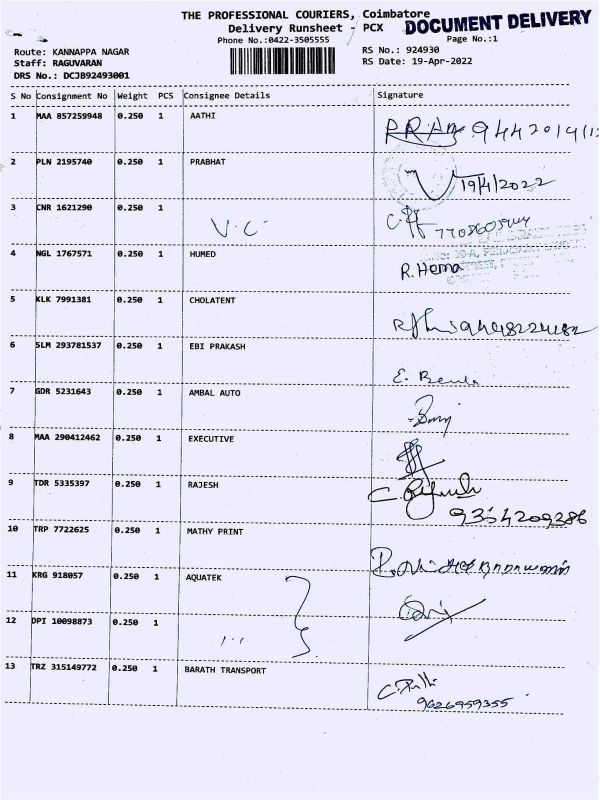 THE PROFESSIONAL COURIERS, Coimbatore
Delivery Runsheet - PCX
DOCUMENT DELIVERY
Phone No.:0422-3505555
Page No.:1
Route: KANNAPPA NAGAR
RS No.: 924930
Staff: RAGUVARAN
RS Date: 19-Apr-2022
DRS No.: DCJB92493001
S No Consignment No Weight PCS Consignee Details Signature
1 MAA 857259948 0.250 1 AATHI
2 PLN 2195740 0.250 1 PRABHAT
19/4/2022
3 CNR 1621290 0.250 1
V.C.
4 NGL 1767571 0.250 1 HUMED
R. Hema
5 KLK 7991381 0.250 1 CHOLATENT
6 SLM 293781537 0.250 1 EBI PRAKASH
7 GDR 5231643 0.250 1 AMBAL AUTO
8 MAA 290412462 0.250 1 EXECUTIVE
9 TDR 5335397 0.250 1 RAJESH
9354209386
10 TRP 7722625 0.250 1 MATHY PRINT
11 KRG 918057 0.250 1 AQUATEK
12 DPI 10098873 0.250 1
13 TRZ 315149772 0.250 1 BARATH TRANSPORT
9626959355